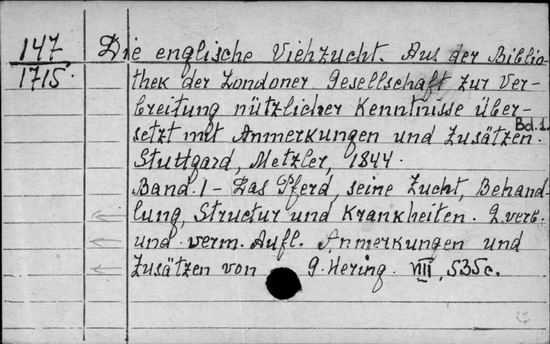 147
1715
Die englische Viehzucht. Aus der Biblio-
thek der Londoner Gesellschaft zur Ver-
breitung nützlicher Kenntnisse über-
setzt mit Anmerkungen und Zusätzen. Bd.1.
Stuttgard, Metzler, 1844.
Band.1 - Das Pferd, seine Zucht, Behand-
lung, Structur und Krankheiten. 2 verb.
und verm. Aufl. Anmerkungen und
Zusätzen von G. Hering. VIII, 535c.